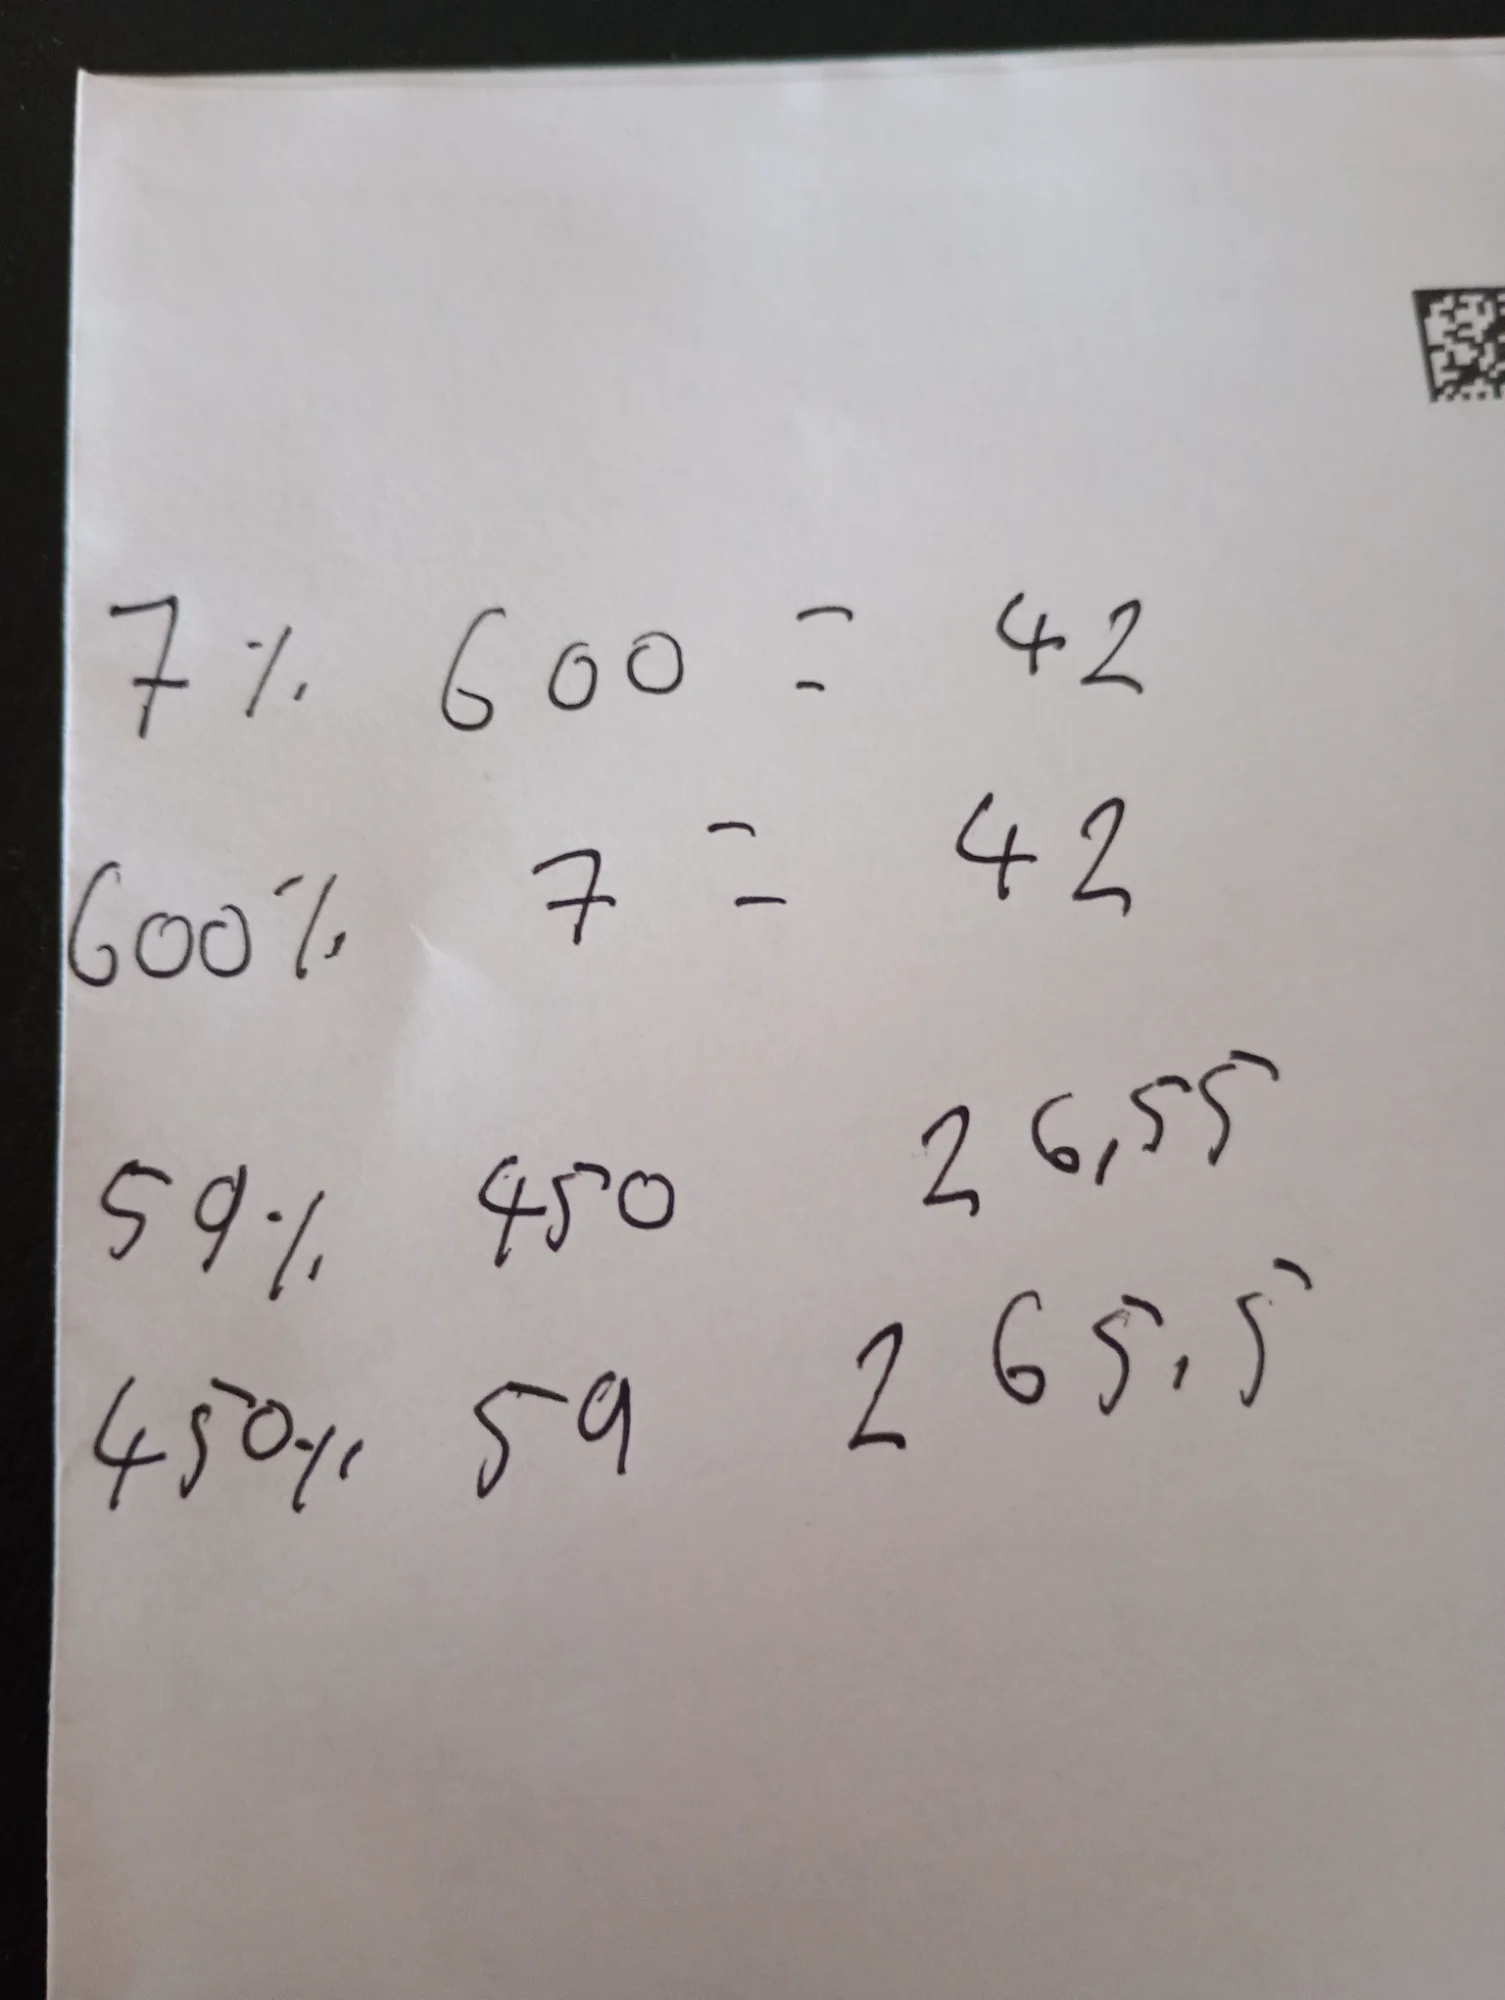 7% 600 = 42
600% 7 = 42
59% 450 26,55
450% 59 265,5